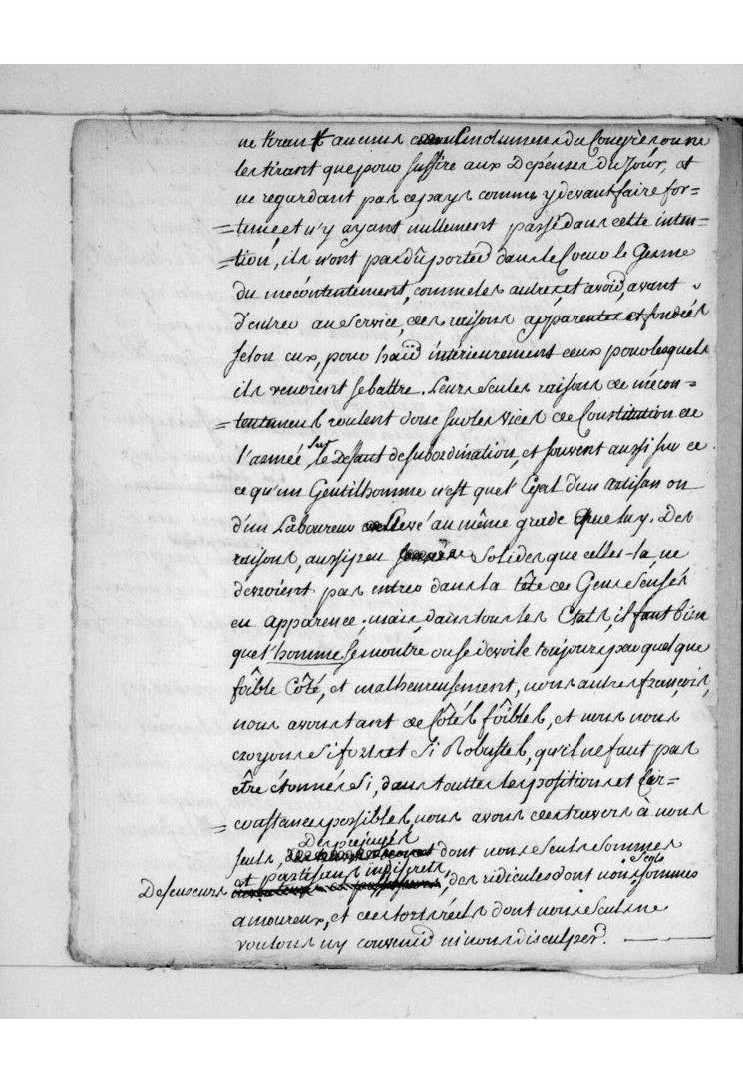 ne tirant aucuns Emolumens du Congrès ou ne
les tirant que pour suffire aux Dépenses du Jour, et
ne regardant pas ce pays comme y devant faire for=
=tune et n'y ayant nullement passé dans cette inten=
=tion, ils n'ont pas dû porter dans le Coeur le Germe
du mécontentement, comme les autres, et avoir, avant
d'entrer au Service, des raisons apparentes et fondées
selon eux, pour haïr intérieurement ceux pour lesquels
ils venoient se battre. Leurs seules raisons de mécon=
=tentement roulent donc sur les vices de Constitution de
l'armée, sur le Défaut de subordination, et souvent aussi sur ce
ce qu'un Gentilhomme n'est que l'Egal d'un artisan ou
d'un Laboureur Elevé au même grade que luy. Des
raisons, aussi peu Solides que celles-là, ne
devroient pas entrer dans la tête de Gens sensés
en apparence; mais, dans tous les Etats, il faut bien
que l'homme se montre ou se devoile toujours par quelque
foible Côté, et malheureusement, nous autres françois,
nous avons tant de Côtés foibles, et nous nous
croyons si forts et si Robustes, qu'il ne faut pas
être étonnés si, dans touttes les positions et Cir=
=constances possibles, nous avons des travers à nous
seuls, Des préjugés dont nous seuls sommes
Defenseurs et partisans indiscrets, des ridicules dont nous seuls sommes
amoureux, et des torts réels dont nous seuls ne
voulons ny convenir ni nous disculper.